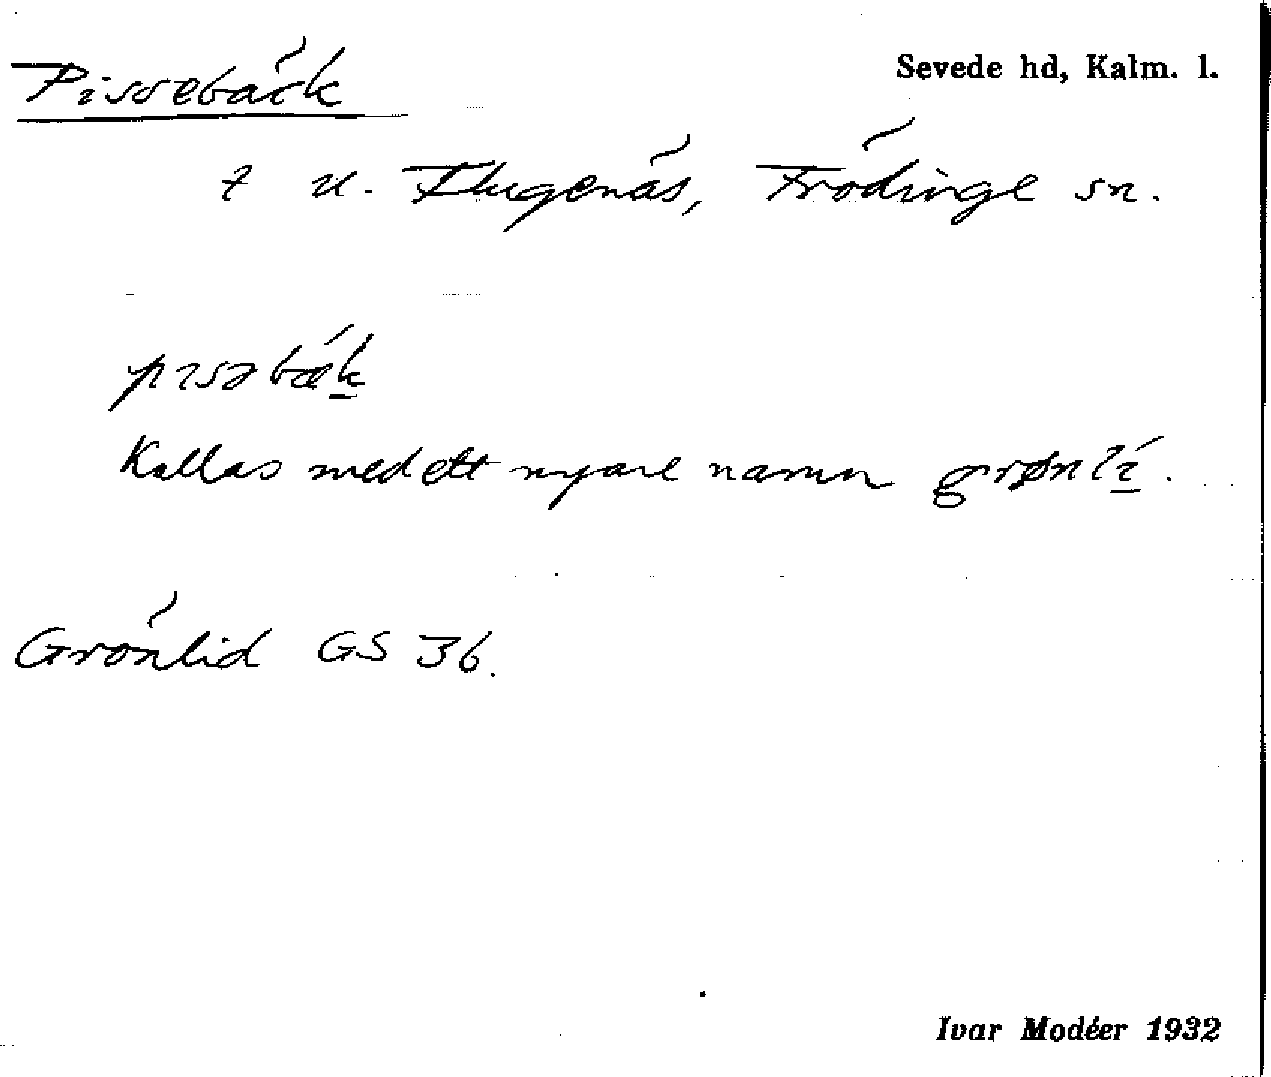 Pissebäck
Sevede hd, Kalm. l.
t u. Flugenäs, Frödinge sn.
pısəbæ̀k
Kallas med ett nyare namn grønlí.
Grönlid GS 36.
Ivar Modéer 1932